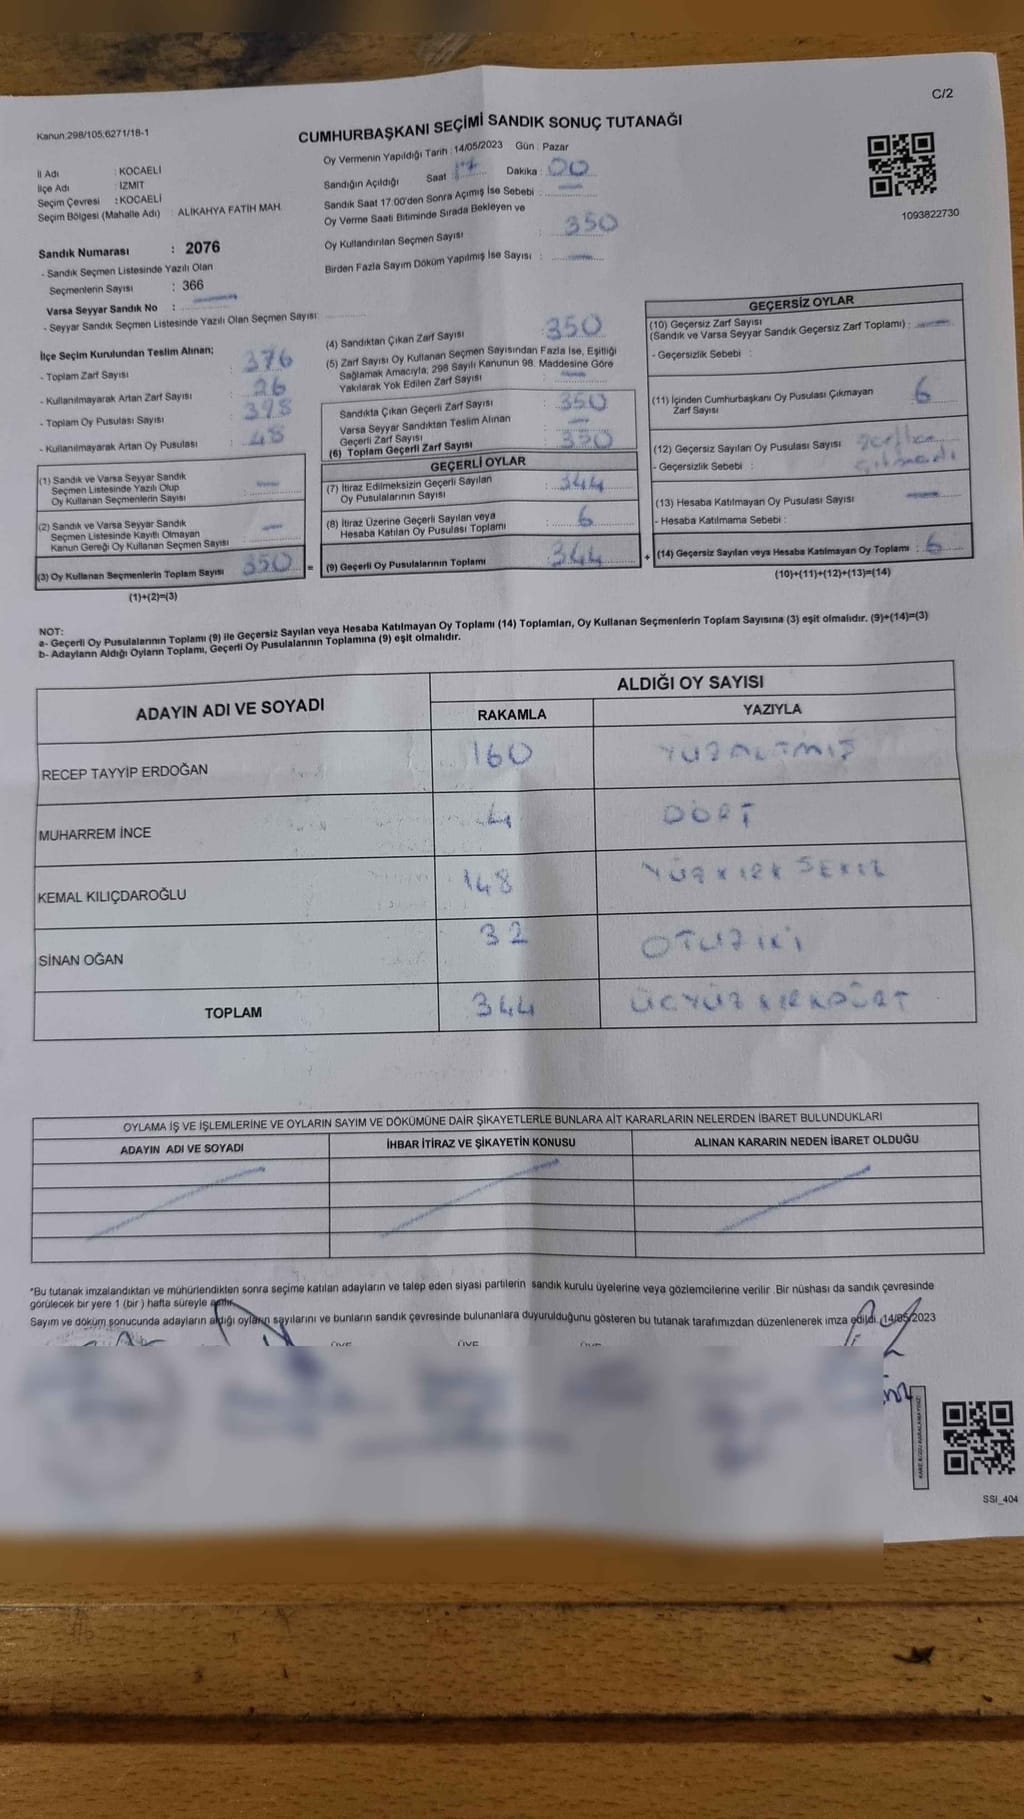 C/2
Kanun.298/105,6271/18-1
CUMHURBAŞKANI SEÇİMİ SANDIK SONUÇ TUTANAĞI
İl Adı : KOCAELİ
İlçe Adı : İZMİT
Seçim Çevresi : KOCAELİ
Seçim Bölgesi (Mahalle Adı) : ALİKAHYA FATİH MAH.
Oy Vermenin Yapıldığı Tarih : 14/05/2023 Gün : Pazar
Sandığın Açıldığı Saat : 17 Dakika : 00
Sandık Saat 17:00'den Sonra Açımış İse Sebebi : —
Oy Verme Saati Bitiminde Sırada Bekleyen ve
Oy Kullandırılan Seçmen Sayısı : 350
Birden Fazla Sayım Döküm Yapılmış İse Sayısı : —
1093822730
Sandık Numarası : 2076
- Sandık Seçmen Listesinde Yazılı Olan
Seçmenlerin Sayısı : 366
Varsa Seyyar Sandık No : —
- Seyyar Sandık Seçmen Listesinde Yazılı Olan Seçmen Sayısı:
İlçe Seçim Kurulundan Teslim Alınan;
- Toplam Zarf Sayısı : 376
- Kullanılmayarak Artan Zarf Sayısı : 26
- Toplam Oy Pusulası Sayısı : 398
- Kullanılmayarak Artan Oy Pusulası : 48
(1) Sandık ve Varsa Seyyar Sandık
Seçmen Listesinde Yazılı Olup
Oy Kullanan Seçmenlerin Sayısı : —
(2) Sandık ve Varsa Seyyar Sandık
Seçmen Listesinde Kayıtlı Olmayan
Kanun Gereği Oy Kullanan Seçmen Sayısı : —
(3) Oy Kullanan Seçmenlerin Toplam Sayısı 350 =
(1)+(2)=(3)
(4) Sandıktan Çıkan Zarf Sayısı : 350
(5) Zarf Sayısı Oy Kullanan Seçmen Sayısından Fazla İse, Eşitliği
Sağlamak Amacıyla, 298 Sayılı Kanunun 98. Maddesine Göre
Yakılarak Yok Edilen Zarf Sayısı : —
Sandıkta Çıkan Geçerli Zarf Sayısı : 350
Varsa Seyyar Sandıktan Teslim Alınan
Geçerli Zarf Sayısı : —
(6) Toplam Geçerli Zarf Sayısı : 350
GEÇERLİ OYLAR
(7) İtiraz Edilmeksizin Geçerli Sayılan
Oy Pusulalarının Sayısı : 344
(8) İtiraz Üzerine Geçerli Sayılan veya
Hesaba Katılan Oy Pusulası Toplamı : 6
(9) Geçerli Oy Pusulalarının Toplamı : 344 +
GEÇERSİZ OYLAR
(10) Geçersiz Zarf Sayısı
(Sandık ve Varsa Seyyar Sandık Geçersiz Zarf Toplamı) : —
- Geçersizlik Sebebi :
(11) İçinden Cumhurbaşkanı Oy Pusulası Çıkmayan
Zarf Sayısı : 6
(12) Geçersiz Sayılan Oy Pusulası Sayısı
- Geçersizlik Sebebi :
(13) Hesaba Katılmayan Oy Pusulası Sayısı : —
- Hesaba Katılmama Sebebi :
(14) Geçersiz Sayılan veya Hesaba Katılmayan Oy Toplamı : 6
(10)+(11)+(12)+(13)=(14)
NOT:
a- Geçerli Oy Pusulalarının Toplamı (9) ile Geçersiz Sayılan veya Hesaba Katılmayan Oy Toplamı (14) Toplamları, Oy Kullanan Seçmenlerin Toplam Sayısına (3) eşit olmalıdır. (9)+(14)=(3)
b- Adayların Aldığı Oyların Toplamı, Geçerli Oy Pusulalarının Toplamına (9) eşit olmalıdır.
ADAYIN ADI VE SOYADI
ALDIĞI OY SAYISI
RAKAMLA YAZIYLA
RECEP TAYYİP ERDOĞAN 160 YÜZALTMIŞ
MUHARREM İNCE 4 DÖRT
KEMAL KILIÇDAROĞLU 148 YÜZKIRKSEKİZ
SİNAN OĞAN 32 OTUZİKİ
TOPLAM 344 ÜÇYÜZKIRKDÖRT
OYLAMA İŞ VE İŞLEMLERİNE VE OYLARIN SAYIM VE DÖKÜMÜNE DAİR ŞİKAYETLERLE BUNLARA AİT KARARLARIN NELERDEN İBARET BULUNDUKLARI
ADAYIN ADI VE SOYADI İHBAR İTİRAZ VE ŞİKAYETİN KONUSU ALINAN KARARIN NEDEN İBARET OLDUĞU
*Bu tutanak imzalandıktan ve mühürlendikten sonra seçime katılan adayların ve talep eden siyasi partilerin sandık kurulu üyelerine veya gözlemcilerine verilir. Bir nüshası da sandık çevresinde
görülecek bir yere 1 (bir) hafta süreyle asılır.
Sayım ve döküm sonucunda adayların aldığı oyların sayılarını ve bunların sandık çevresinde bulunanlara duyurulduğunu gösteren bu tutanak tarafımızdan düzenlenerek imza edildi. 14/05/2023
ÜYE ÜYE ÜYE
SSI_404